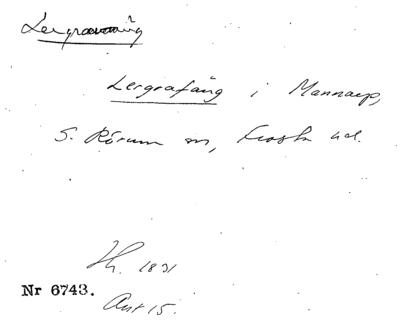 Lergravning
Lergrafäng i Mannarp,
S. Rörum sn, Frosta hd.
Hz. 1831
Nr 6743.
Akt 15.